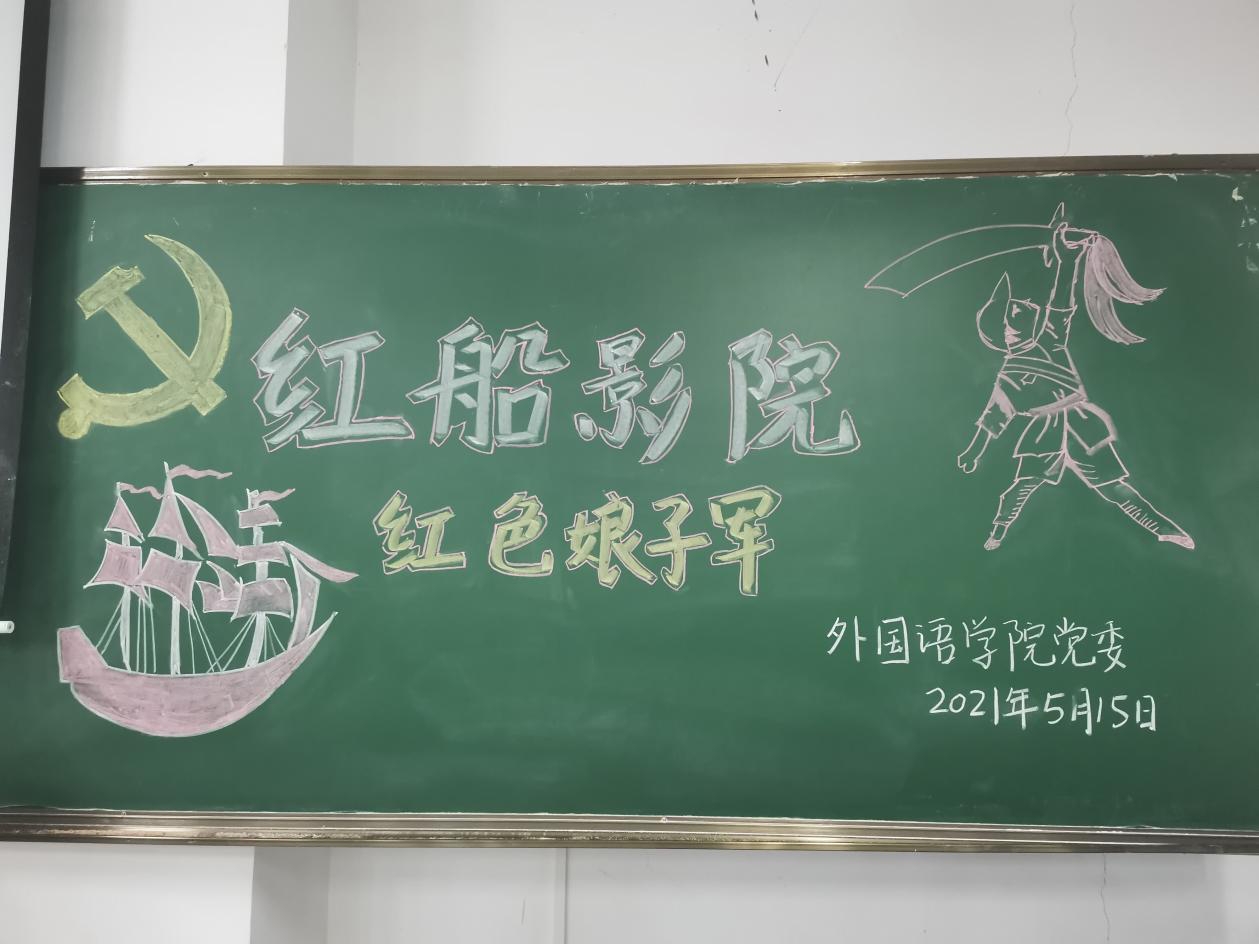 红船影院
红色娘子军
外国语学院党委
2021年5月15日